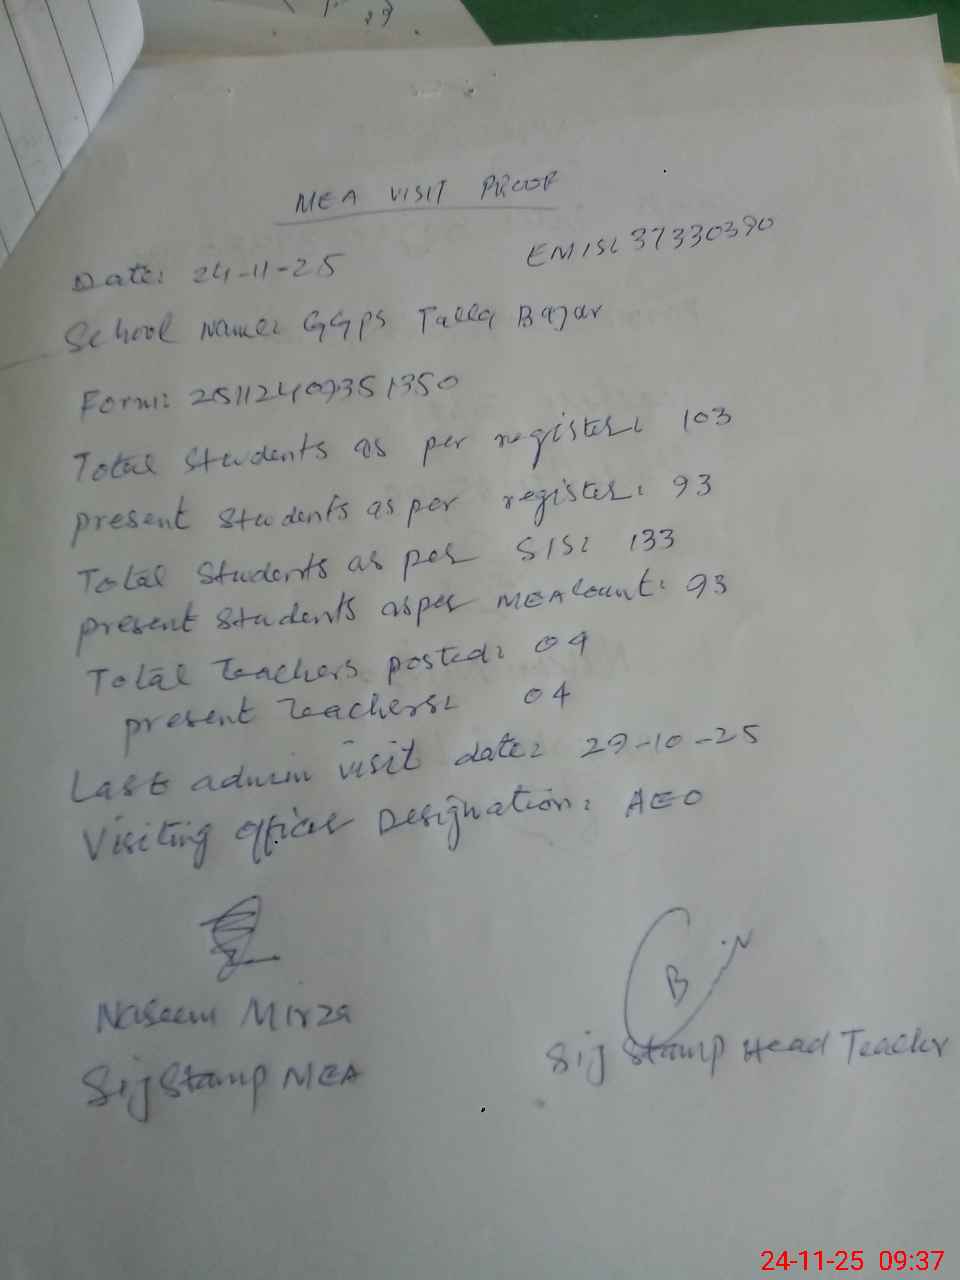 MEA VISIT PROOF
Date: 24-11-25 EMIS: 37330390
School Name: GGPS Talla Bajar
Form: 25112409351350
Total Students as per register: 103
present Students as per register: 93
Total Students as per SIS: 133
present Students as per MEA count: 93
Total Teachers posted: 04
present Teachers: 04
Last admin visit date: 29-10-25
Visiting officer Designation: AEO
B
Naseem Mirza
Sig Stamp MEA
Sig Stamp Head Teacher
24-11-25 09:37